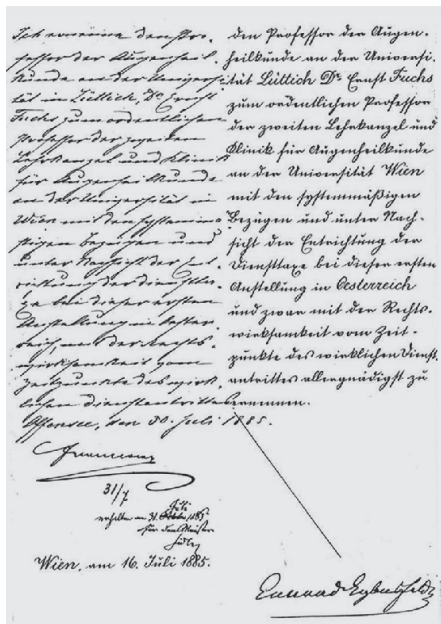 Ich ernenne den Pro-
fessor der Augenheil-
kunde an der Universi-
tät in Lüttich, Dr Ernst
Fuchs zum ordentlichen
Professor der zweiten
Lehrkanzel und Klinik
für Augenheilkunde
an der Universität in
Wien mit den systemmä-
ßigen Bezügen und
unter Nachsicht der Ent-
richtung der Dienstta-
xe bei dieser ersten
Anstellung in Oester-
reich und der Rechts-
wirksamkeit vom
Zeitpunkte des wirk-
lichen Dienstantrittes.
Offensee, den 30. Juli 1885.
31/7
Juli
erhalten am 31. 1885
Wien, am 16. Juli 1885.
den Professor der Augen-
heilkunde an der Universi-
tät Lüttich Dr Ernst Fuchs
zum ordentlichen Professor
der zweiten Lehrkanzel und
Klinik für Augenheilkunde
an der Universität Wien
mit den systemmäßigen
Bezügen und unter Nach-
sicht der Entrichtung der
Diensttaxe bei dieser ersten
Anstellung in Oesterreich
und zwar mit der Rechts-
wirksamkeit vom Zeit-
punkte des wirklichen Dienst-
antrittes allergnädigst zu
ernennen.
Conrad Eybesfeld